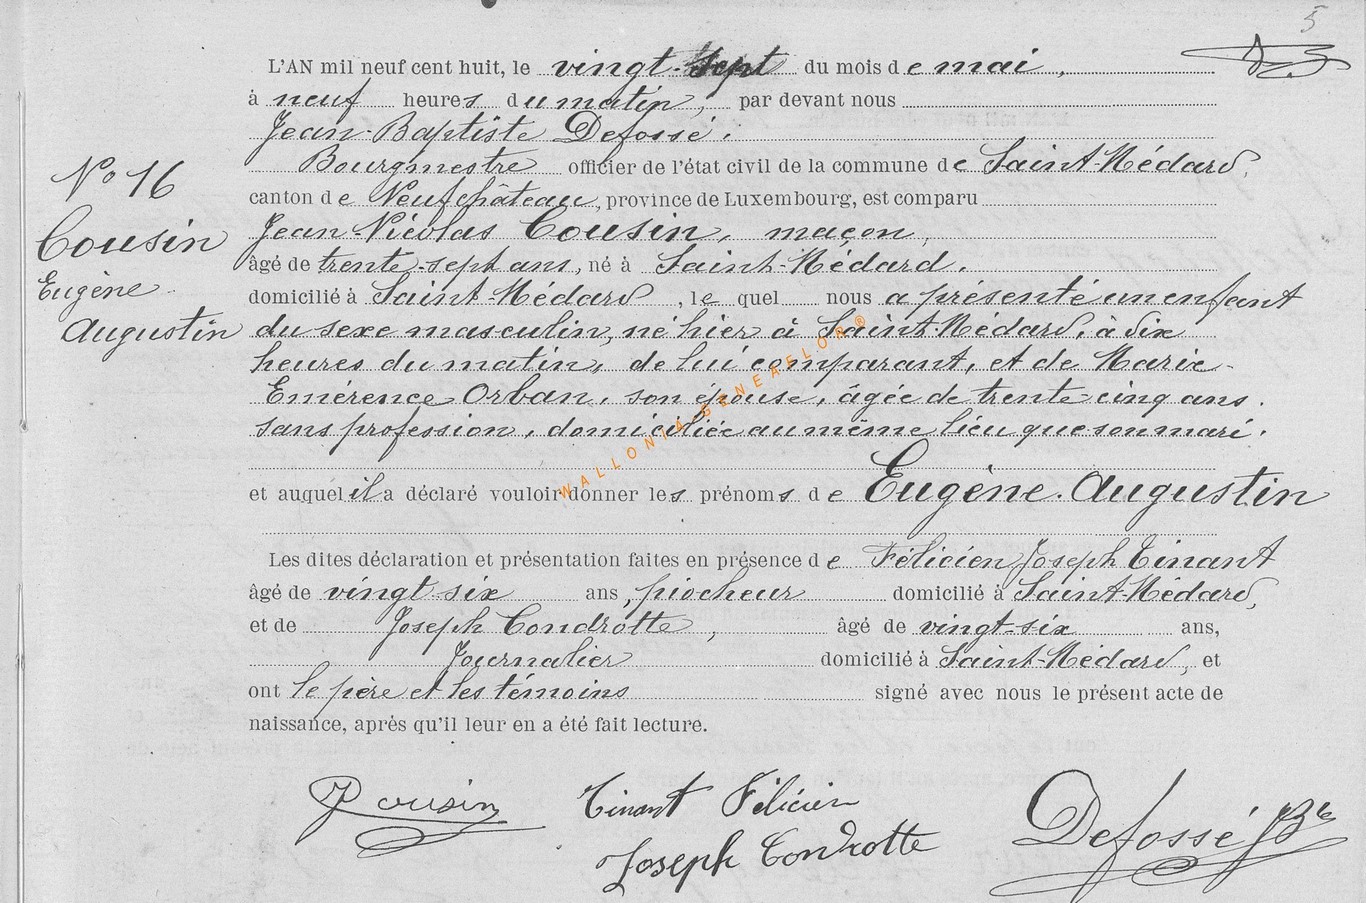 5
L'AN mil neuf cent huit, le vingt-sept du mois de mai,
à neuf heures du matin, par devant nous
Jean-Baptiste Defossé.
Bourgmestre officier de l'état civil de la commune de Saint-Médard,
canton de Neufchâteau, province de Luxembourg, est comparu
Jean-Nicolas Cousin, maçon,
âgé de trente-sept ans, né à Saint-Médard.
domicilié à Saint-Médard, lequel nous a présenté un enfant
du sexe masculin, né hier à Saint-Médard, à six
heures du matin, de lui comparant, et de Marie-
Emérence Orban, son épouse, âgée de trente-cinq ans.
sans profession, domiciliée au même lieu que son mari.
et auquel il a déclaré vouloir donner les prénoms de Eugène-Augustin
Les dites déclaration et présentation faites en présence de Félicien Joseph Tinant
âgé de vingt-six ans, piocheur domicilié à Saint-Médard,
et de Joseph Condrotte, âgé de vingt-six ans,
Journalier domicilié à Saint-Médard, et
ont le père et les témoins signé avec nous le présent acte de
naissance, après qu'il leur en a été fait lecture.
No 16
Cousin
Eugène
Augustin
WALLONIA GENEAFLOR®
Cousin
Tinant Félicien
Joseph Condrotte
Defossé JBte